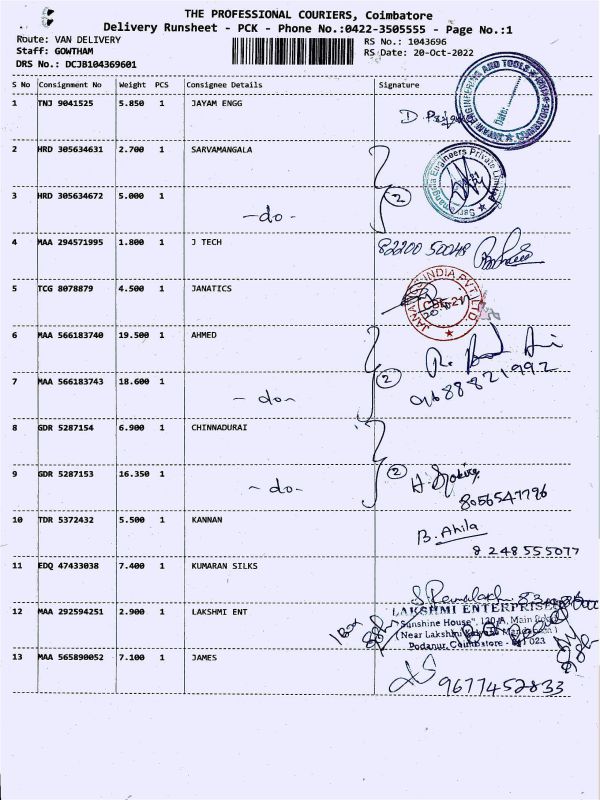 THE PROFESSIONAL COURIERS, Coimbatore
Delivery Runsheet - PCK - Phone No.:0422-3505555 - Page No.:1
Route: VAN DELIVERY RS No.: 1043696
Staff: GOWTHAM RS Date: 20-Oct-2022
DRS No.: DCJB104369601
S No Consignment No Weight PCS Consignee Details Signature
1 TNJ 9041525 5.850 1 JAYAM ENGG
JAYAM ENGINEERING AND TOOLS
Date:
2 HRD 305634631 2.700 1 SARVAMANGALA
Engineers Private Limited
3 HRD 305634672 5.000 1 -do- 2
4 MAA 294571995 1.800 1 J TECH 82200 50048
5 TCG 8078879 4.500 1 JANATICS
INDIA PVT LTD
CBE-21
6 MAA 566183740 19.500 1 AHMED
7 MAA 566183743 18.600 1 - do - 2 9688821992
8 GDR 5287154 6.900 1 CHINNADURAI
9 GDR 5287153 16.350 1 - do - 2
8056547796
10 TDR 5372432 5.500 1 KANNAN B. Ahila
8248555077
11 EDQ 47433038 7.400 1 KUMARAN SILKS
12 MAA 292594251 2.900 1 LAKSHMI ENT
LAKSHMI ENTERPRISES
"Sunshine House", Main
(Near Lakshmi
Podanur, Coimbatore - 023
13 MAA 565890052 7.100 1 JAMES
9677452833